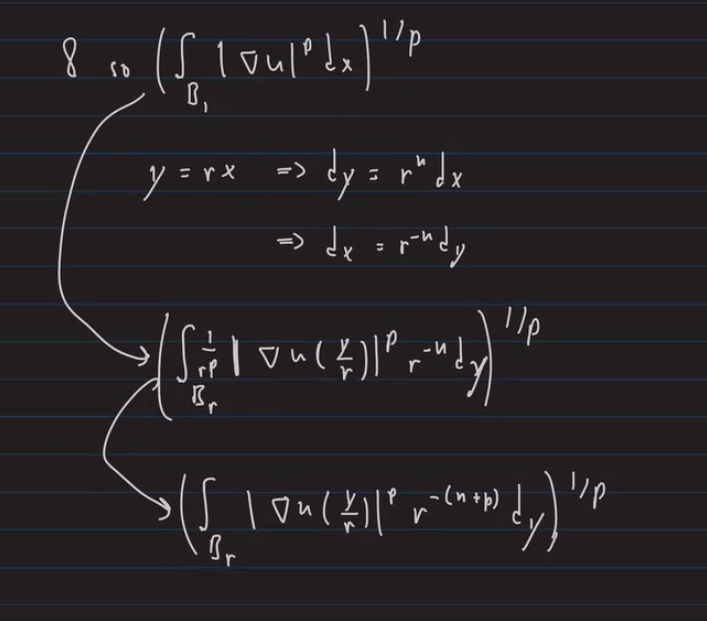 8 so (∫_{B_1} |∇u|^p dx)^{1/p}
y = rx => dy = r^n dx
=> dx = r^{-n} dy
(∫_{B_r} \frac{1}{r^p} |∇u(\frac{y}{r})|^p r^{-n} dy)^{1/p}
(∫_{B_r} |∇u(\frac{y}{r})|^p r^{-(n+p)} dy)^{1/p}